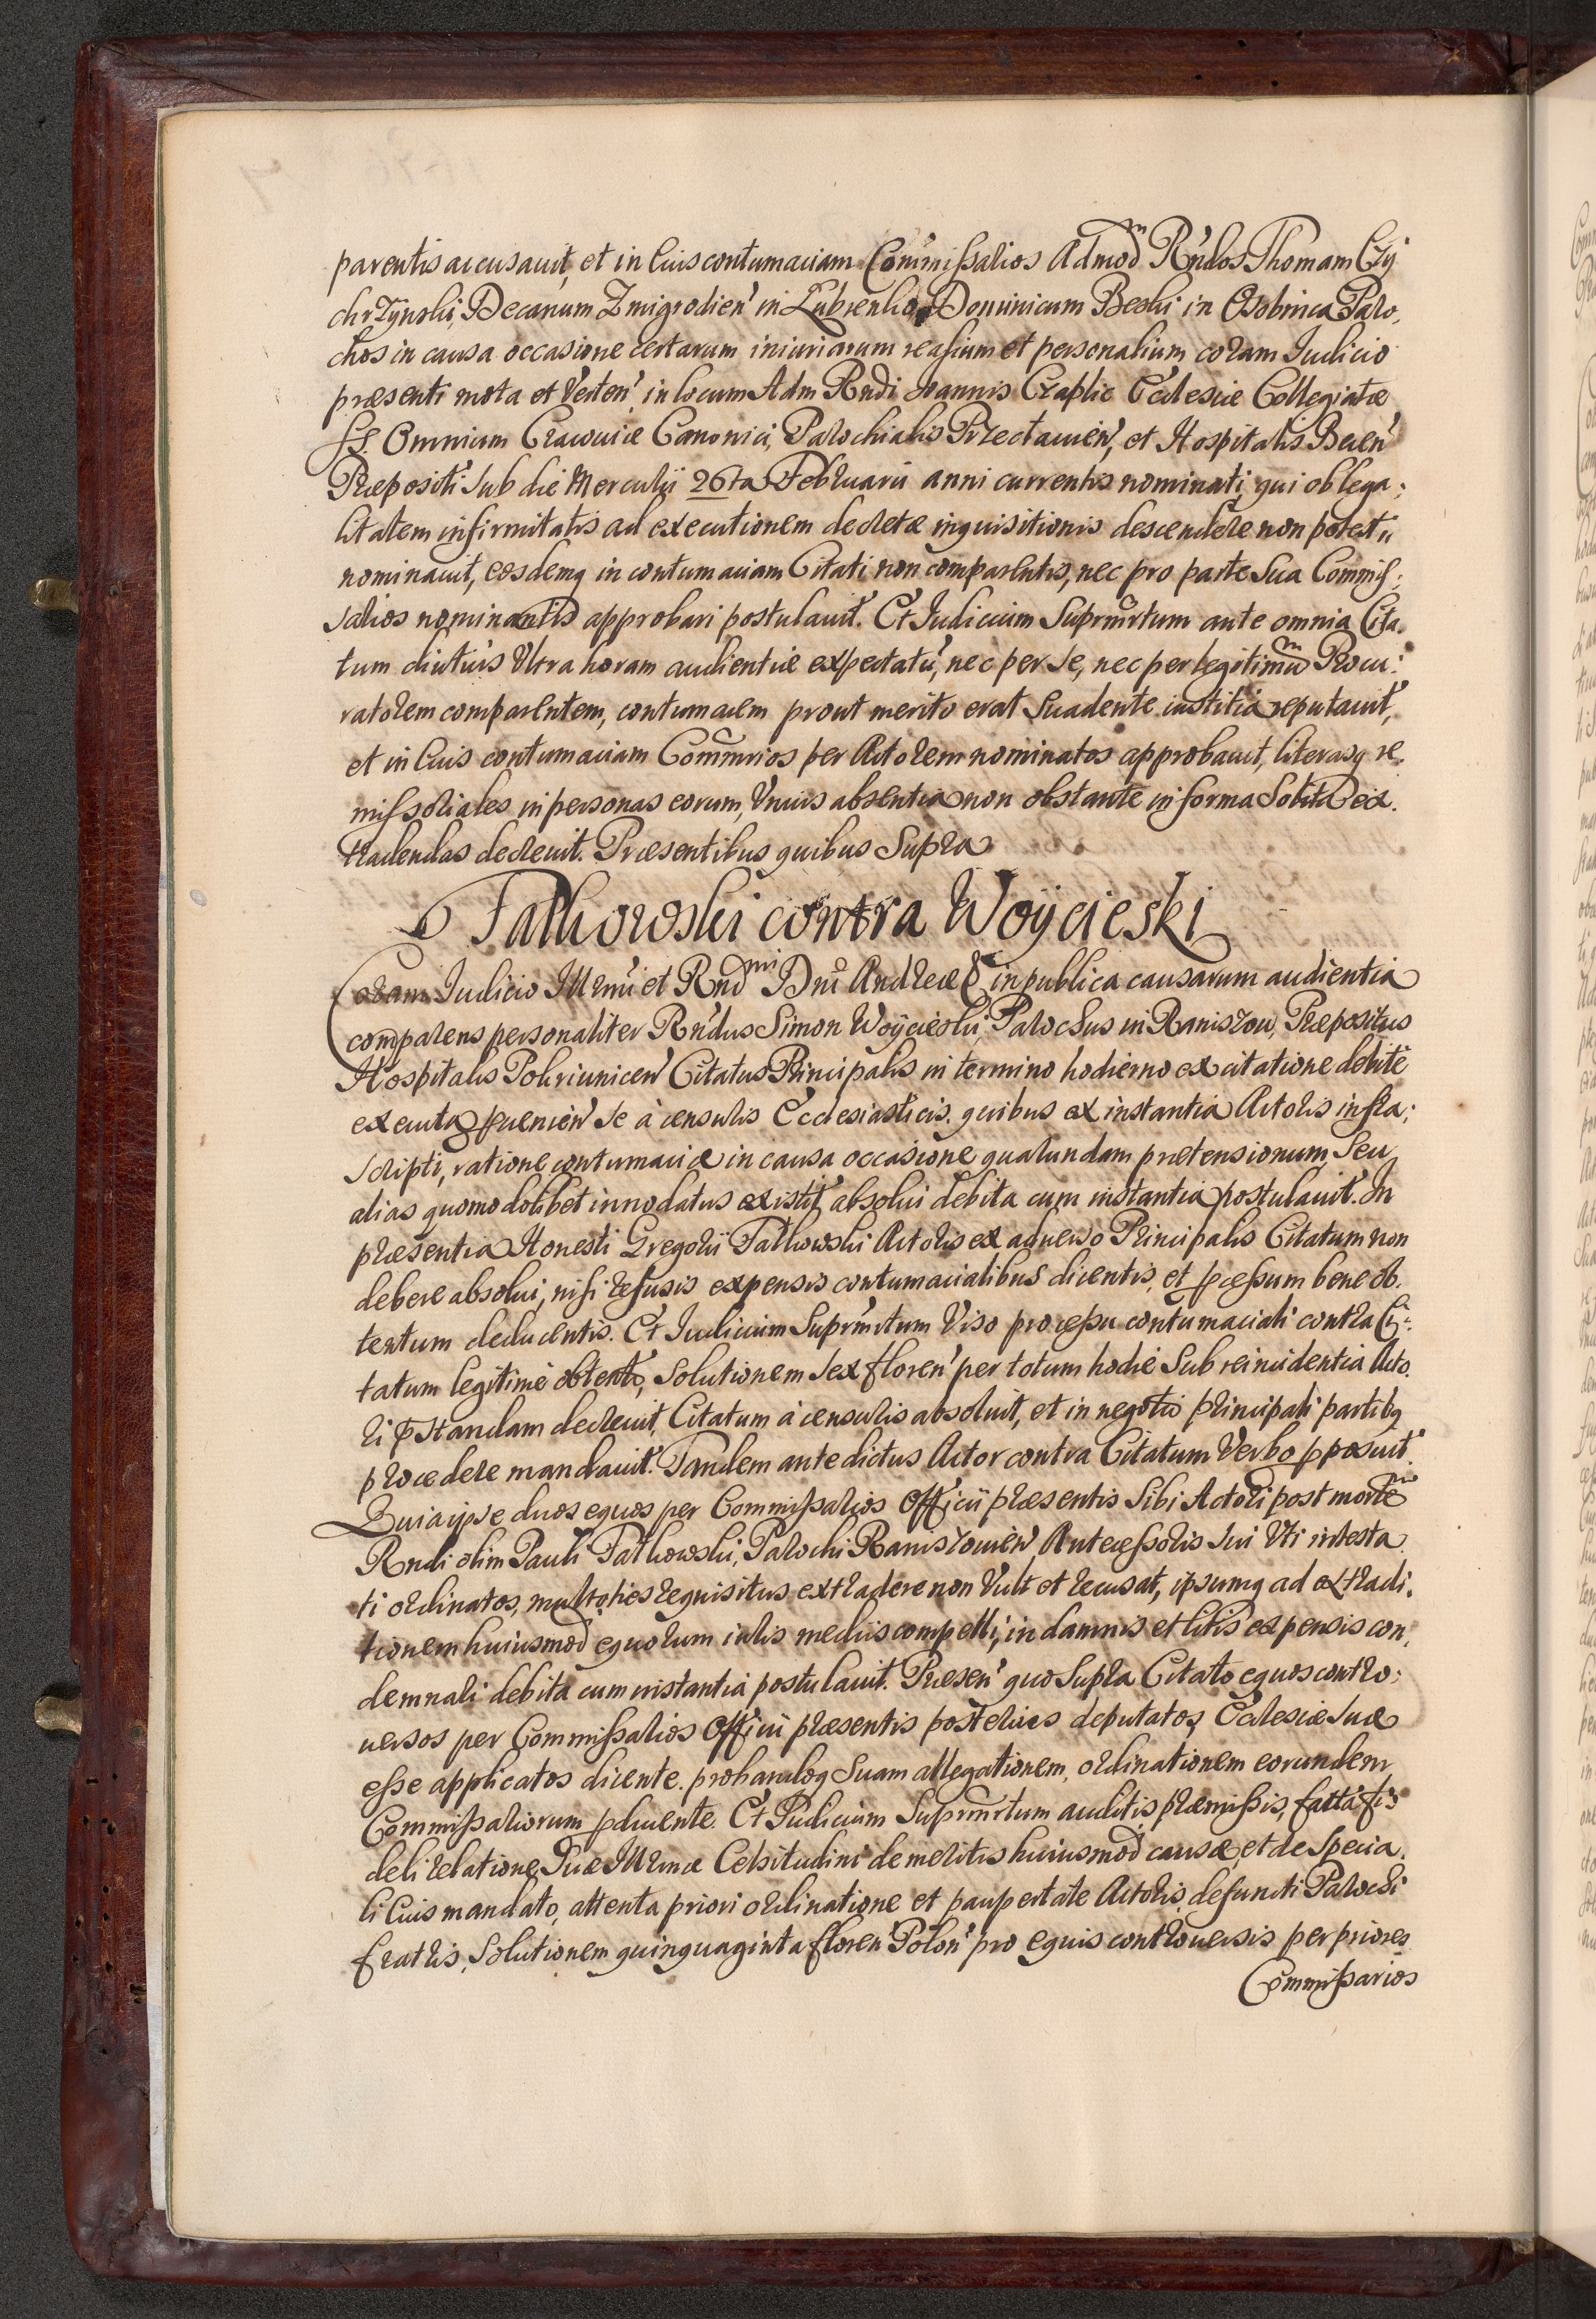 parentis accusauit, et in Cuius contumaciam Com̃missarios Admod̃m Rńdos Thomam Czy
chrzynski, Decanum Zmigrodień in Lubienko, Dominicum Beski in Osobnica Paro,
chos in causa occasione certarum iniuriarum realium et personalium coram Iudicio
præsenti mota et Verteń in locum Adm Rndi Joannis Czaplic Ecclesiæ Collegiatæ
SS. Omnium Cracouiæ Canonici, Parochialis Przectauień, et Hospitalis Becen̄
Præpositi Sub die Mercurii 26ta Februarii anni currentis nominati qui ob lega;
litatem infirmitatis ad executionem decretæ inquisitionis descendere non potest,,
nominauit, eosdemq in contumaciam Citati non comparentis, nec pro parte Sua Commis;
sarios nominantis approbari postulauit. Et Iudicium Suprmrtum ante omnia Cita,
tum diutius Ultra horam audientiæ expectatũ, nec per se, nec per legitimũm Procu:
ratorem comparentem, contumacem prout merito erat Suadente iustitia reputauit,
et in Cuius contumaciam Com̃mrios per Actorem nominatos approbauit, literasq re,
missoriales in personas eorum, Vnius absentia non obstante in forma Solita ex.
tradendas decreuit. Præsentibus quibus Supra
Fatkowski contra Woÿcieski
Coram Iudicio Illrmi et Rndmi Dni Andreæ &c in publica causarum audientia
comparens personaliter Rńdus Simon Woÿcieski, Parochus in Raniszow, Præpositus
Hospitalis Pokriunicen̄ Citatus Principalis in termino hodierno ex citatione debite
executa prueniēn Se à censuris Ecclesiasticis, quibus ex instantia Actoris infra;
scripti, ratione contumaciæ in causa occasione quarundam prætensionum, Seu
alias quomodolibet innodatus existit, absolui debita cum instantia postulauit. In
præsentia Honesti Gregorii Fatkowski Actoris ex aduerso Principalis Citatum non
debere absolui, nisi refusis expensis contumacialibus dicentis, et pcessum bene ob,
tentum deducentis. Et Iudicium Suprmrtum Viso processu contumaciali contra Ci:
tatum legitime obtento, Solutionem Sex floreń per totum hodie Sub reincidentia Acto,
ri pstandam decreuit, Citatum à censuris absoluit, et in negotio principali partibq
procedere mandauit. Tandem antedictus Actor contra Citatum Verbo pposuit.
Quia ipse duos equos per Commissarios Officii præsentis Sibi Actori post mortẽm
Rndi olim Pauli Fatkowski, Parochi Raniszouień Antecessoris Sui Vti intesta
ti ordinatos, multoties requisitus extradere non Vult et recusat, ipsumq ad extradi,
tionem huiusmod̃ equorum iuris mediis compelli, in damnis et litis expensis con,
demnari debita cum instantia postulauit. Præseń quo Supra Citato equos contro;
uersos per Commissarios Officii præsentis posterius deputatos, Ecclesiæ Suæ
esse applicatos dicente. probandoq Suam allegationem, ordinationem eorundem
Commissariorum pducente. Et Iudicium Suprmrtum auditis præmissis, facta fi,
deli relatione Suæ Illrmæ Celsitudini de meritis huiusmod̃ causæ, et de Specia,
li Cuius mandato, attenta priori ordinatione et paupertate Actoris, defuncti Parochi
fratris, Solutionem quinquaginta floreń Poloń pro equis controuersis per priores
Commissarios